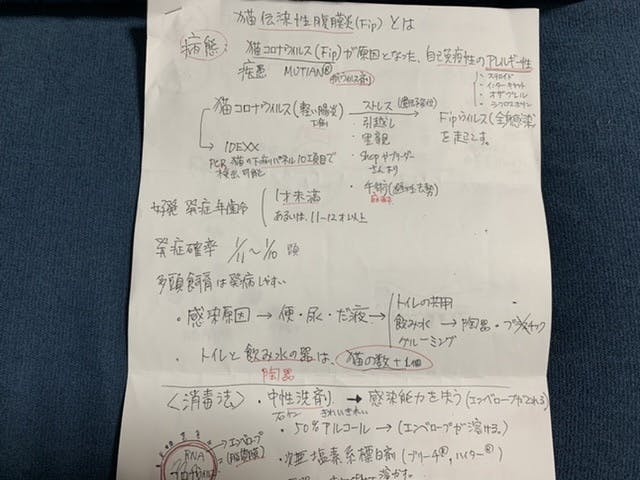 猫伝染性腹膜炎(Fip)とは
病態:
猫コロナウイルス(Fip)が原因となった、自己免疫性のアレルギー性
疾患 MUTIAN® 抗ウイルス剤
・ステロイド
・インターキャット
・オザグレル
・シクロスポリン
猫コロナウイルス(軽い腸炎
ストレス
Fipウイルス(全身感染)
を起こす。
・引越し
・里親
・shopやブリーダー
さんより
・手術(避妊去勢)
麻酔
IDEXX
PCR 猫の下痢パネル10項目で
検出可能
好発 発症年齢
1才未満
あるいは、11~12才以上
発症確率 1/11~1/10 頭
多頭飼育は発病しやすい
・感染原因→便・尿・だ液→
トイレの共用
飲み水→陶器・プラスチック
グルーミング
・トイレと飲み水の器は、猫の数+1個
陶器
〈消毒法〉・中性洗剤→感染能力を失う(エンベロープがとれる)
石ケン
・50%アルコール→(エンベロープが溶ける)
エンベロープ
(脂質膜)
RNA
・次亜塩素系漂白剤(ブリーチ®,ハイター®)
溶かす。